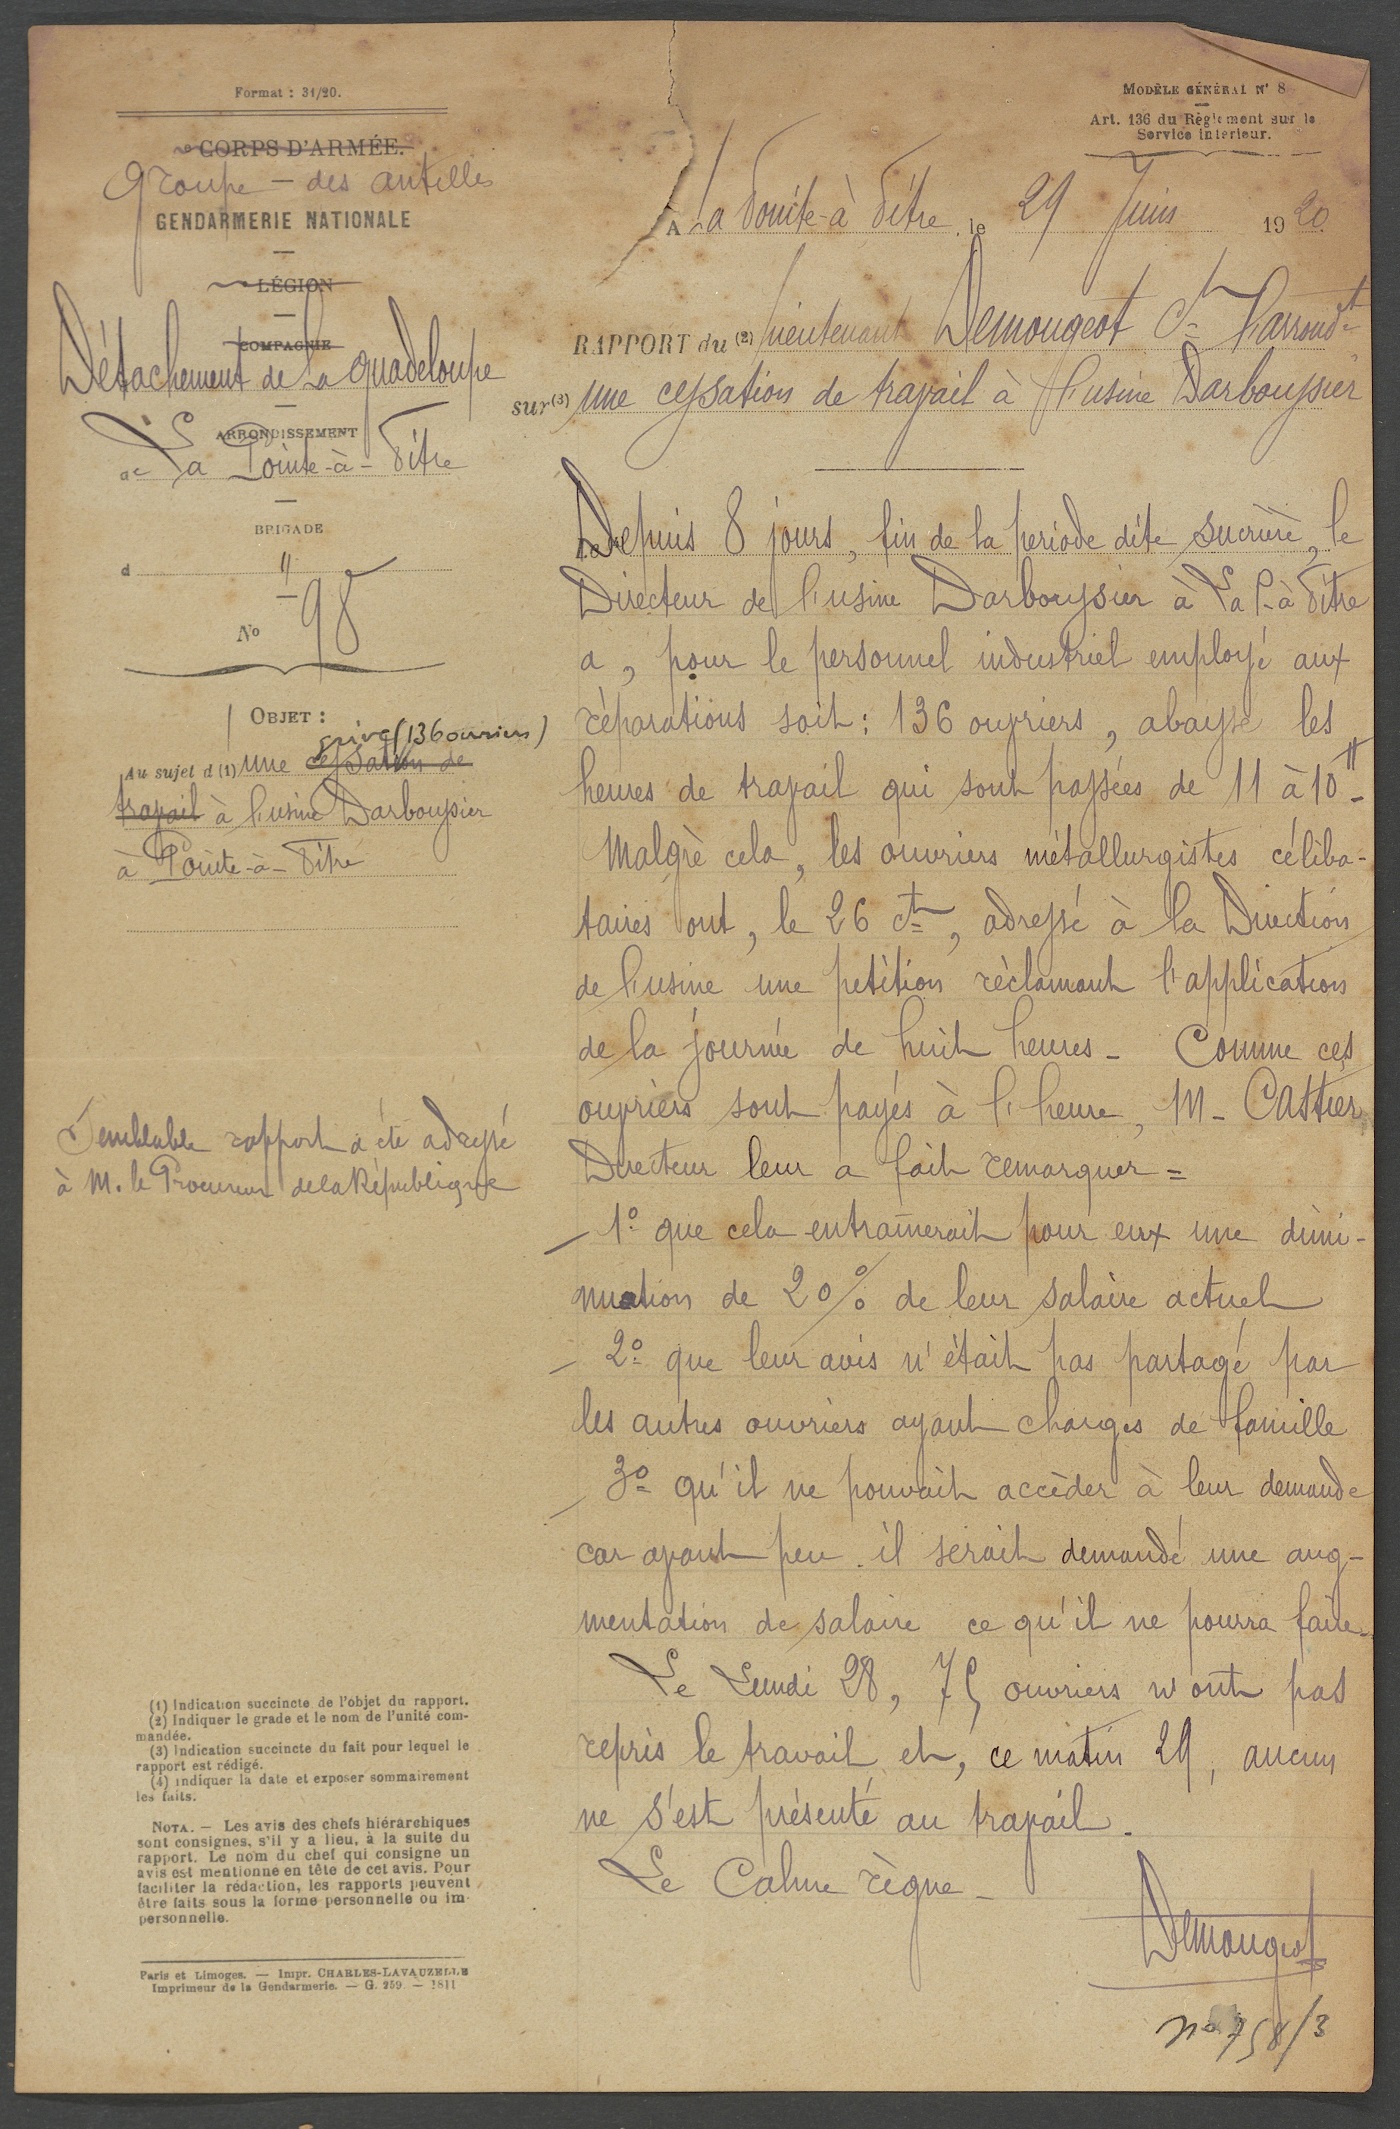 Format : 31/20.
e CORPS D'ARMÉE.
Groupe - des Antilles
GENDARMERIE NATIONALE
LÉGION
COMPAGNIE
Détachement de La Guadeloupe
ARRONDISSEMENT
de La Pointe-à-Pitre
BRIGADE
d "
No 98
OBJET :
grève (136 ouvriers)
Au sujet d (1) une cessation de
travail à l'usine Darboussier
à Pointe-à-Pitre
Semblable rapport a été adressé
à M. le Procureur de la République
(1) Indication succincte de l'objet du rapport.
(2) Indiquer le grade et le nom de l'unité com-
mandée.
(3) Indication succincte du fait pour lequel le
rapport est rédigé.
(4) Indiquer la date et exposer sommairement
les faits.
NOTA. — Les avis des chefs hiérarchiques
sont consignés, s'il y a lieu, à la suite du
rapport. Le nom du chef qui consigne un
avis est mentionné en tête de cet avis. Pour
faciliter la rédaction, les rapports peuvent
être faits sous la forme personnelle ou im-
personnelle.
Paris et Limoges. — Impr. CHARLES-LAVAUZELLE
Imprimeur de la Gendarmerie. — G. 259. — 1811
MODÈLE GÉNÉRAL N° 8
Art. 136 du Règlement sur le
Service intérieur.
A La Pointe-à-Pitre, le 29 Juin 1920.
RAPPORT du (2) lieutenant Demougeot Ct l'arrondt
sur (3) une cessation de travail à l'usine Darboussier
Depuis 8 jours, fin de la période dite sucrière, le
Directeur de l'usine Darboussier à La P-à-Pitre
a, pour le personnel industriel employé aux
réparations soit : 136 ouvriers, abaissé les
heures de travail qui sont passées de 11 à 10" -
Malgré cela, les ouvriers métallurgistes céliba-
taires ont, le 26 ct, adressé à la Direction
de l'usine une pétition réclamant l'application
de la journée de huit heures - Comme ces
ouvriers sont payés à l'heure, M- Castier
Directeur leur a fait remarquer =
- 1° que cela entraînerait pour eux une dimi-
nuation de 20% de leur salaire actuel
- 2° que leur avis n'était pas partagé par
les autres ouvriers ayant charges de famille
- 3° qu'il ne pouvait accéder à leur demande
car avant peu il serait demandé une aug-
mentation de salaire ce qu'il ne pourra faire -
Le Lundi 28, 75 ouvriers n'ont pas
repris le travail et, ce matin 29, aucun
ne s'est présenté au travail.
Le Calme règne -
Demougeot
No 758/3